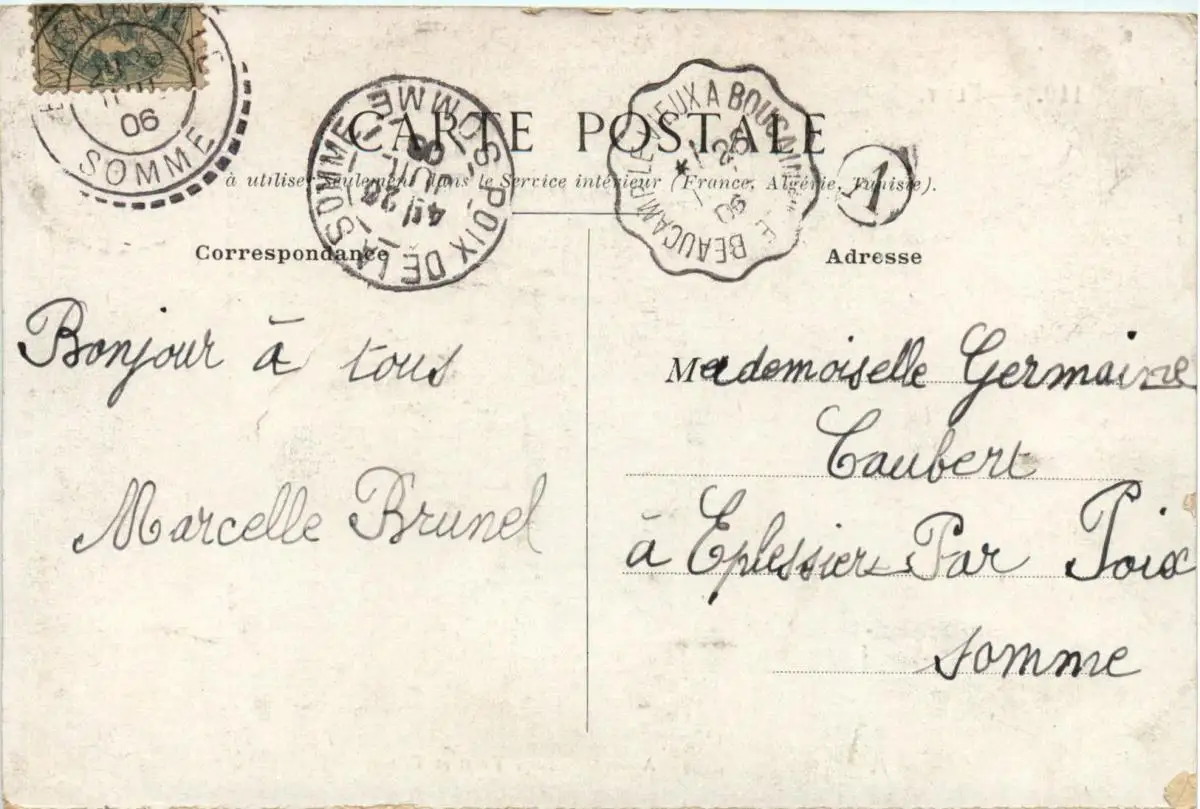 06
SOMME
CARTE POSTALE
à utiliser seulement dans le Service intérieur (France, Algérie, Tunisie).
POIX DE LA SOMME
SOMME
06
BEAUCAMPS
A
06
1
Correspondance
Adresse
Bonjour à tous
Marcelle Brunel
Mademoiselle Germaine
Caubert
à Eplessier Par Poix
Somme